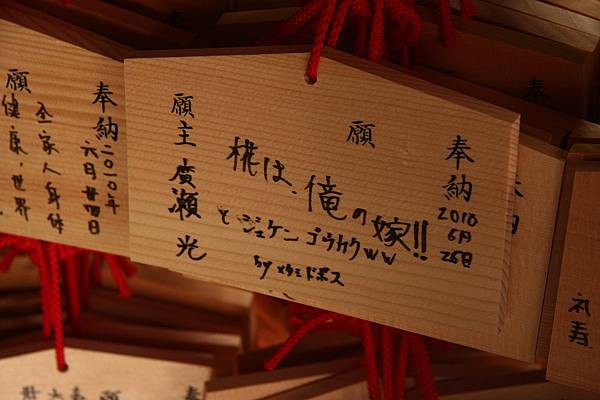 奉納 2010 6月 26日
願
椛は、俺の嫁!!
と ジュケン ゴウカクww
by メタミドポス
願主 廣瀬 光
奉納 二〇一〇年
六月廿四日
全家人身体
願 健康、世界
礼寿
奉
願